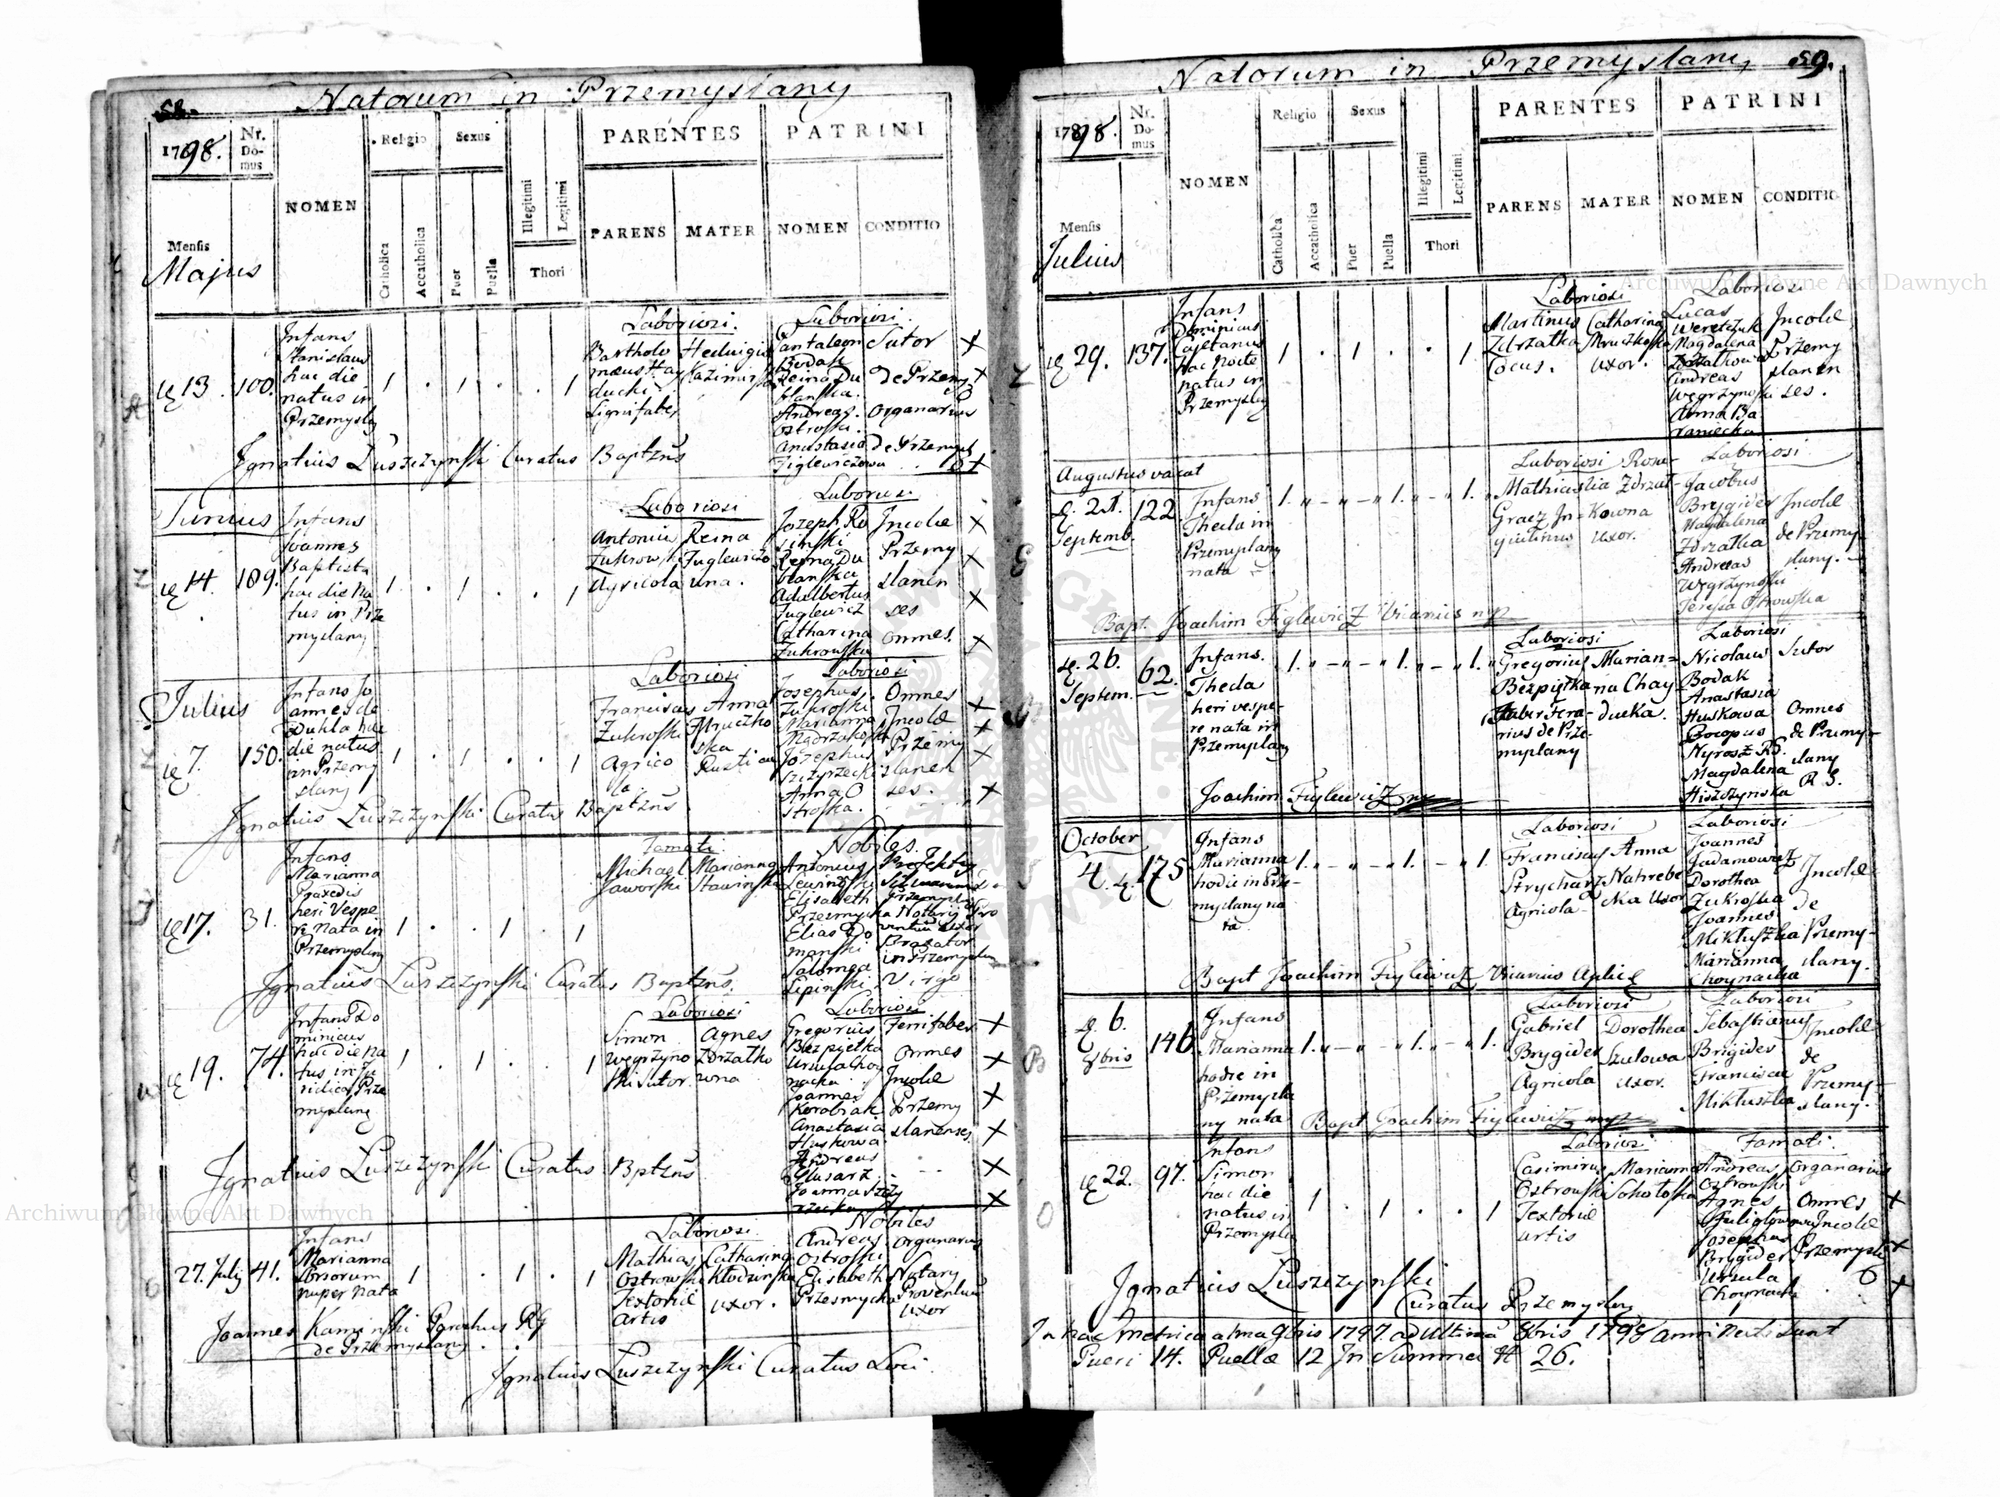 58.
Natorum in Przemyslany
1798.
Nr. Domus
NOMEN
Religio
Sexus
Illegitimi
Legitimi
PARENTES
PATRINI
Mensis
Majus
Catholica
Accatholica
Puer
Puella
Thori
PARENS
MATER
NOMEN
CONDITIO
13
100.
Infans
Stanislaus
hac die
natus in
Przemyslany
1 . 1 . . 1
Laboriosi.
Bartholo
mæus Hay
ducki
Lignifaber
Hedwigis
Laboriosi.
Pantaleon
Bodak
Andreas
Ostroski.
Anastasia
Figlewiczowa
Sutor
Organarius
de Przemysl
Ignatius Luszczynski Curatus Baptzns
Junius
14.
109.
Infans
Joannes
Baptista
hac die na
tus in Prze
myslany
1 . 1 . . 1
Laboriosi
Antoniu
Zukrowski
Agricola
Reina
Fuglewiczo
wna.
Laboriosi.
Jozeph Ro
sinski
Adalbertus
Fuglewicz
Catharina
Zukrowska
Incolæ
Przemy
slanen
ses
omnes.
Julius
7.
150.
Infans Jo
annes de
Dukla hac
die natus
in Przemy
slany
1 . 1 . . 1
Laboriosi
Franciscus
Zukroski
Agrico
la
Anna
Mruczko
ska
Laboriosi
Josephus
Zukroski
Marianna
Josephus
Anna O
stroska.
Omnes
Incolæ
Przemy
slanen
ses.
Ignatius Luszczynski Curatus Baptzns
17.
31.
Infans
Marianna
Praxedis
heri Vespe
re nata in
Przemyslany
1 . . 1 . 1
Famati.
Michael
Jaworski
Marianna
Stawinska
Nobiles.
Antonius
Lewinski
Elisabeth
Przesmycka
Elias Do
manski
Salomea
Lipinski
Notarij Pro
ventuum Uxor
Braxator
in Przemyslany
Virgo
Ignatius Luszczynski Curatus Baptzns.
19.
74.
Infans Do
minicus
hac die na
tus in
Prze
myslany
1 . 1 . . 1
Laboriosi
Simon
Wegrzyno
ski Sutor
Agnes
Zdrzatko
wna
Laboriosi
Gregorius
Bezpiętka
Ursula Choy
nacka
Joannes
Korobiak
Anastasia
Huskowa
Andreas
Slusarz
Joanna
Ferrifaber
omnes
Incolæ
Przemy
slanenses
Ignatius Luszczynski Curatus Bptzns
27. July
41.
Infans
Marianna
nuper nata
1 . . 1 . 1
Laboriosi
Mathias
Ostrowski
Textoriæ
Artis
Catharina
Kłodzinska
Uxor.
Nobiles
Andreas
Ostroski
Elisabeth
Przesmycka
Organarius
Notary
Proventuum
Uxor
Joannes Kaminski Parochus
de Przemyslany.
Ignatius Luszczynski Curatus Loci.
59.
Natorum in Przemyslany
1798.
Nr. Domus
NOMEN
Religio
Sexus
Illegitimi
Legitimi
PARENTES
PATRINI
Mensis
Julius
Catholica
Accatholica
Puer
Puella
Thori
PARENS
MATER
NOMEN
CONDITIO
29.
137.
Infans
Dominicus
Cajetanus
hac Nocte
natus in
Przemyslany
1 . 1 . . 1
Laboriosi
Martinus
Zdrzatka
Cocus.
Catharina
Mruczkoska
Uxor.
Laboriosi.
Lucas
Weretczuk
Magdalena
Zdrzatkowa
Andreas
Wegrzynoski
Anna Ba
raniecka
Incolæ
Przemy
slanen
ses.
Augustus vacat
21.
Septemb.
122
Infans
Thecla in
Przemyslany
nata
1. 1. 1.
Laboriosi
Mathias
Gracz In-
quilinus
Rosa-
lia Zdrzat-
kowna
Uxor.
Laboriosi
Jacobus
Brygider
Magdalena
Zdrzatka
Andreas
Wegrzynoski
Teressa Ostrowska
Incolæ
de Przemy-
slany.
Bapt. Joachim Figlewicz Vicarius mp
26.
Septem.
62.
Infans.
Thecla
heri vespe-
re nata in
Przemyslany
1. 1. 1.
Laboriosi
Gregorius
Bezpiętka
Faber Fera-
rius de Prze-
myslany
Marian-
na Chay-
ducka.
Laboriosi
Nicolaus
Bodak
Anastasia
Huskowa
Procopus
Hyrosz R.
Magdalena
Hiszczynska
Sutor
Omnes
de Przemy-
slany
R. G.
Joachim Figlewicz mp
October
4.
175
Infans
Marianna
hodie in Prze-
myslany na
ta
1. 1. 1.
Laboriosi
Franciscus
Strycharz
Agricola
Anna
Nahrebe
cka Uxor
Laboriosi
Joannes
Judamowicz
Dorothea
Zukroska
Joannes
Miktuszka
Marianna
Choynacka
Incolæ
de
Przemy-
slany.
Bapt Joachim Figlewicz Vicarius
6.
8bris
146
Infans
Marianna
hodie in
Przemysla
ny nata
1. 1. 1.
Laboriosi
Gabriel
Brygider
Agricola
Dorothea
Szulowa
Uxor.
Laboriosi
Sebastianus
Brigider
Francisca
Miktuszka
Incolæ
de
Przemy-
slany.
Bapt Joachim Figlewicz mp
22.
97.
Infans
Simon
hac die
natus in
Przemysla
1 . 1 . . 1
Laboriosi
Casimirus
Ostrowski
Textoriæ
artis
Marianna
Sokołoska
Famati.
Andreas
Ostroski
Agnes
Josephus
Brygider
Ursula
Choynacka
Organarius
Omnes
Incolæ
Przemysla
Ignatius Luszczynski
Curatus Przemyslany
In hac Metrica a 1ma 9bris 1797. ad Ultima 8bris 1798 anni Nati Sunt
Pueri 14. Puellæ 12 In Summa # 26.
Archiwum Główne Akt Dawnych
Archiwum Główne Akt Dawnych